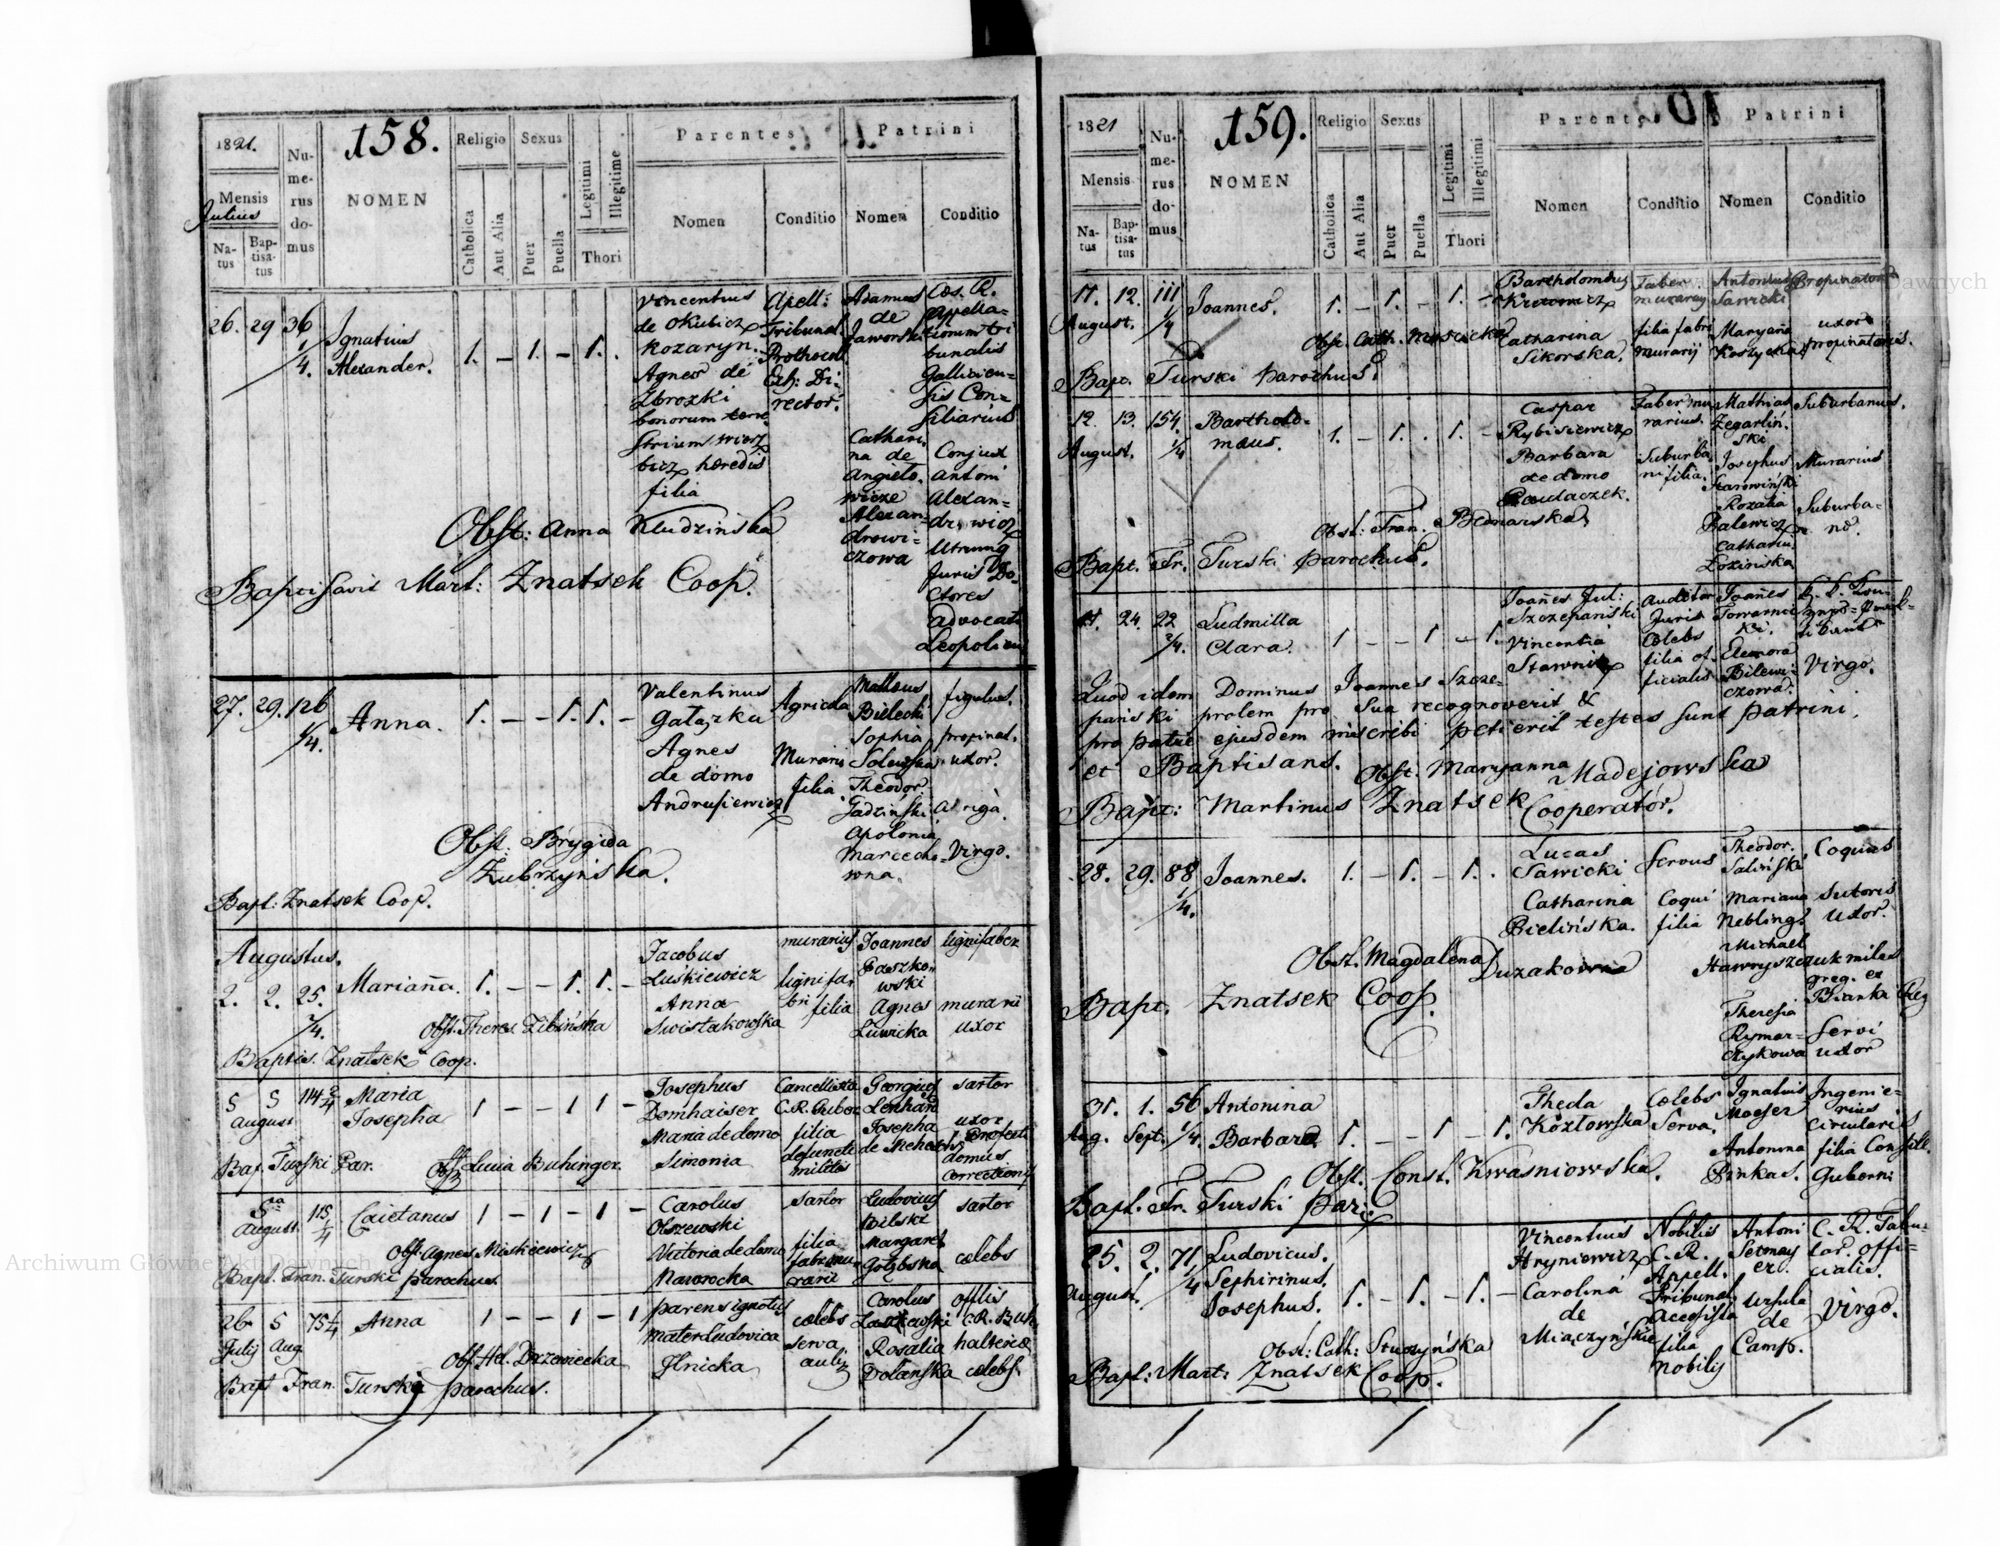 1821.
158.
Mensis
Julius
Natus
Baptisatus
Numerus domus
NOMEN
Religio
Catholica
Aut Alia
Sexus
Puer
Puella
Legitimi
Illegitime
Thori
Parentes
Nomen
Conditio
Patrini
Nomen
Conditio
26. 29 36 1/4. Ignatius Alexander. 1. – 1. – 1. .
Vincentius
de Okubicz
Kozaryn.
Agnes de
Zbrozki
bonorum terre
strium
hæredis
filia
Apell:
Tribunal.
Prothocoll
Exh: Di-
rector.
Adamus
de
Jaworski
Cæs. R.
Appella-
tionum tri
bunalis
Galicien-
sis Con-
siliarius
Cathari
na de
Angielo-
wicze
Alexan-
drowi-
czowa
Conjux
Antoni
Alexan-
drowicz
Utriusq
Juris Do-
ctores
advocati
Leopolien
Obst: Anna Kludzinska
Baptisavit Mart: Znatsek Coop.
27. 29. 126 1/4. Anna. 1. – – 1. 1. –
Valentinus
Gałązka
Agnes
de domo
Andrusiewicz
Agricola
Murarii
filia
Matheus
Bielecki
Sophia
Theodor
Gadziński
Apolonia
Marcecho-
wna.
figulus.
propinat.
uxor.
Auriga.
Virgo.
Obst. Brygida
Zubrzyńska.
Bapt: Znatsek Coop.
Augustus.
2. 2. 25. 2/4. Mariana. 1. – – 1. 1. –
Jacobus
Luskiewicz
Anna
Swistakowska
murarius
lignifa-
bri filia
Joannes
Paszko-
wski
Agnes
Luwicka
lignifaber
murarii
uxor
Obst. Theres. Zibinska
Baptis. Znatsek Coop.
5 5 114 2/4 Maria
August Josepha 1 – – 1 1 –
Josephus
Domhaiser
Maria de domo
Simonia
Cancellista
C.R. Guber.
filia
defuncti
militis
Georgius
Lenhard
Josepha
de
sartor
uxor
domus
correctionis
Bap. Turski Par. Obst Lucia Buhinger.
5ta August. 115 1/4 Caietanus 1 – 1 – 1 –
Carolus
Olszewski
Victoria de domo
Naworocka
sartor
filia
fabri mu-
rarii
Ludovicus
Wilski
Margaret
Gołębska
sartor
cœlebs
Obst. Agnes Miskiewicz
Bapt. Fran. Turski parochus.
26 5 75 1/4 Anna 1 – – 1 – 1
July Aug
parens ignotus
Mater Ludovica
Ilnicka
cœlebs
serva
auliz
Carolus
Rosalia
Dolanska
offlis
C.R. Buch
halteriæ
cœlebs.
Obst. Hel. Drzewiecka
Bapt Fran. Turski parochus.
1821
159.
Mensis
Natus
Baptisatus
Numerus domus
NOMEN
Religio
Catholica
Aut Alia
Sexus
Puer
Puella
Legitimi
Illegitimi
Thori
Parentes
Nomen
Conditio
Patrini
Nomen
Conditio
11. 12. 111 1/4 Joannes. 1. – 1. – 1. –
August.
Bartholomæus
Catharina
Sikorska.
Faber
filia fabri
murarij
Antonius
Sawicki
Maryana
Propinator
uxor
propinatoris.
Obst. Cath. Moscicka
Bapt. Turski Parochus.
12 13. 154. 1/4 Bartholo-
mæus. 1. – 1. . 1. –
August.
Caspar
Rybisiewicz
Barbara
de domo
Faber mu
rarius.
Suburba
ni filia.
Mathias
Zegarliń-
ski
Josephus
Rozalia
Balewicz
Catharin
Łozinska
Suburbanus.
Murarius
Suburba-
ni.
Obst: Fran. Bednarska
Bapt. Fr. Turski Parochus.
24. 22 2/4. Ludmilla
Clara. 1 – – 1 – 1.
Joañes Jul:
Szczepański
Vincentia
Stawnicz
Auditor
Juris
Cælebs
filia of-
ficialis
Joañes
Eleonora
Bilewi-
czowa.
Virgo.
Quod idem Dominus Joannes Szcze-
pański prolem pro sua recognoverit &
pro patre ejusdem inscribi petierit testes sunt patrini
et Baptisans. Obst. Maryanna Madejowska
Bapt: Martinus Znatsek Cooperator.
28. 29. 88 1/4. Joannes. 1. – 1. – 1. .
Lucas
Sawicki
Catharina
Bielińska.
servus
Coqui
filia
Theodor.
Saliński
Mariana
Nebling.
Michael
Hawryszczuk
Theresia
Rymar-
czykowa
Coquus
Sutoris
uxor.
miles
greg. ex
Bianki Reg
servi
uxor
Obst. Magdalena Duzakowna
Bapt. Znatsek Coop.
31. 1. 56 1/4 Antonina
Aug. Sept. Barbara 1. – – 1 – 1.
Theda
Kozłowska
Cœlebs
Serva.
Ignatius
Moeser
Antonina
Pinkas.
Ingenie-
rius
circularis
filia Consil.
Guberni
Obst. Const. Kwasniowska.
Bapt. Fr. Turski Par.
25. 2. 71 1/4 Ludovicus.
August. Sephirinus,
Josephus. 1. – 1. – 1. –
Vincentius
Hryniewicz
Carolina
de
Miączyńskie
Nobilis
C. R.
Appell.
Tribunal
Accessista
filia
Nobilis
Antoni
Ursula
de
Camp.
C. R. Tabu-
lar. offi-
cialis.
Virgo.
Obst: Cath: Stuzyńska
Bapt: Mart: Znatsek Coop.
Archiwum Główne Akt Dawnych